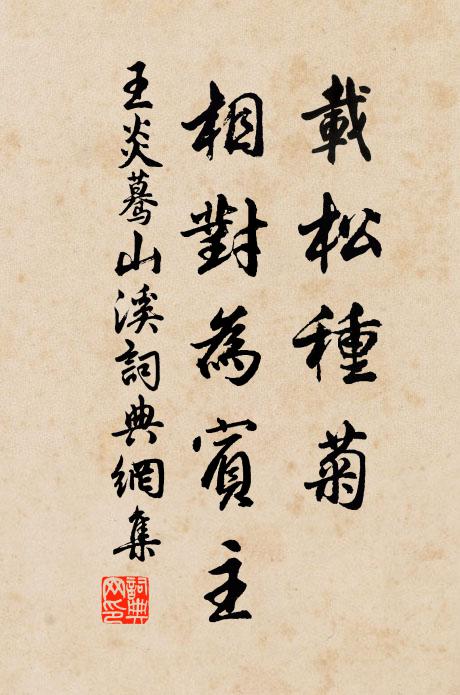 載松種菊
相對為賓主
王炎驀山溪詞典網集
詞典網印